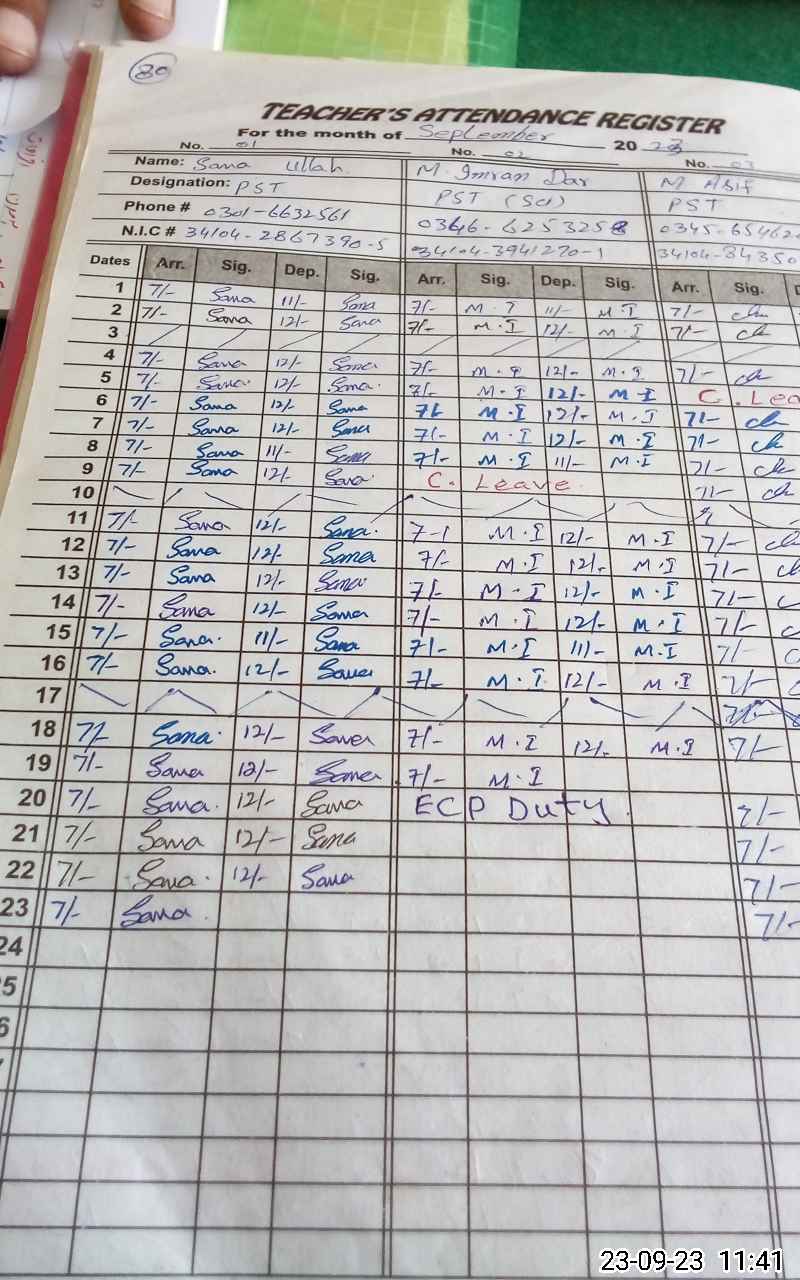 80
TEACHER'S ATTENDANCE REGISTER
For the month of September 2023
No. 01 No. 02 No. 03
Name: Sana Ullah M. Imran Dar M Asif
Designation: PST PST (Sci) PST
Phone # 0301-6632561 0346-6253258 0345-65462
N.I.C # 34104-2867390-5 34104-3941270-1 34104-84350
Dates Arr. Sig. Dep. Sig. Arr. Sig. Dep. Sig. Arr. Sig.
1 7/- Sana 11/- Sana 7/- M.I 11/- M.I 7/-
2 7/- Sana 12/- Sana 7/- M.I 12/- M.I 7/-
3
4 7/- Sana 12/- Sana 7/- M.I 12/- M.I 7/-
5 7/- Sana. 12/- Sana. 7/- M.I 12/- M.I C. Lea
6 7/- Sana 12/- Sana 7/- M.I 12/- M.I 7/-
7 7/- Sana 12/- Sana 7/- M.I 12/- M.I 7/-
8 7/- Sana 11/- Sana 7/- M.I 11/- M.I 7/-
9 7/- Sana 12/- Sana. C. Leave. 7/-
10
11 7/- Sana 12/- Sana. 7-1 M.I 12/- M.I 7/-
12 7/- Sana 12/- Sana 7/- M.I 12/- M.I 7/-
13 7/- Sana 12/- Sana 7/- M.I 12/- M.I 7/-
14 7/- Sana 12/- Sana 7/- M.I 12/- M.I 7/-
15 7/- Sana. 11/- Sana 7/- M.I 11/- M.I 7/-
16 7/- Sana. 12/- Sana 7/- M.I 12/- M.I 7/-
17
18 7/- Sana. 12/- Sana 7/- M.I 12/- M.I 7/-
19 7/- Sana 12/- Sana 7/- M.I
20 7/- Sana. 12/- Sana ECP Duty. 7/-
21 7/- Sana 12/- Sana 7/-
22 7/- Sana. 12/- Sana 7/-
23 7/- Sana. 7/-
24
5
6
23-09-23 11:41